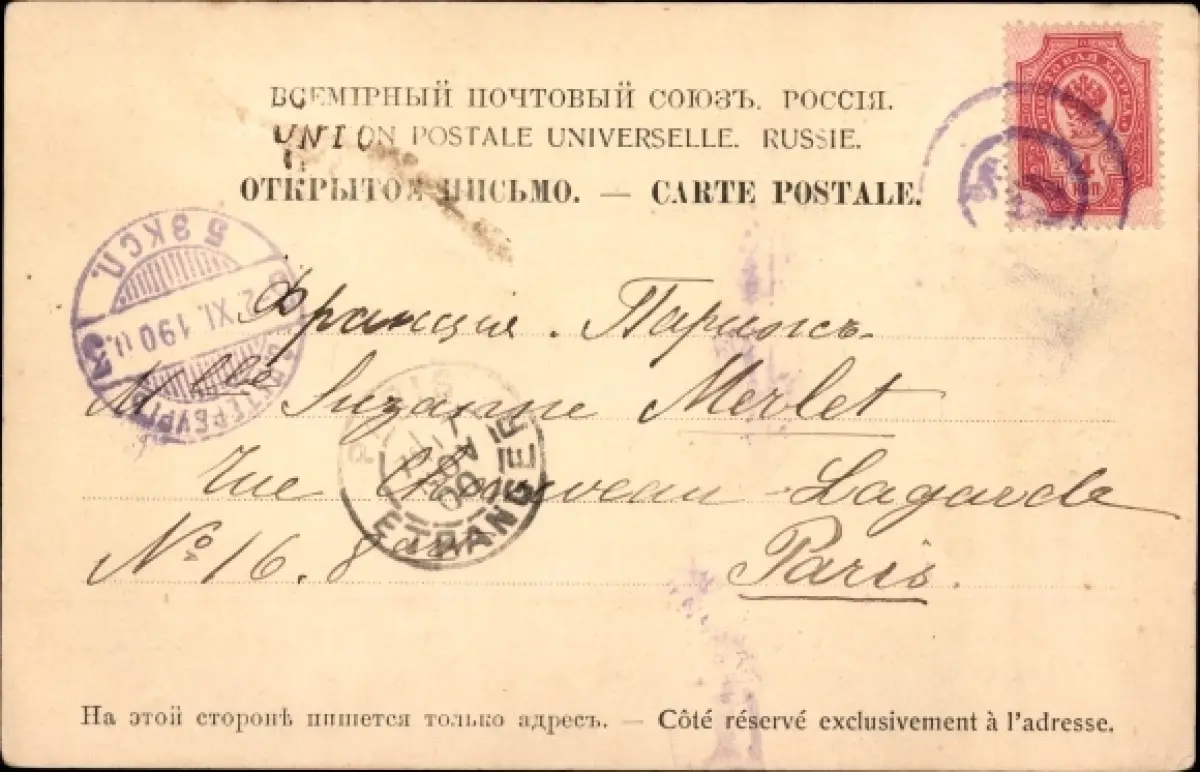 ВСЕМІРНЫЙ ПОЧТОВЫЙ СОЮЗЪ. РОССІЯ.
UNION POSTALE UNIVERSELLE. RUSSIE.
ОТКРЫТОЕ ПИСЬМО. — CARTE POSTALE.
ПОЧТОВАЯ МАРКА
4
КОП
5 ЭКСП.
2 XI. 190
3
Франція. Парижъ
Mlle Suzanne Merlet
PARIS
ETRANGER
rue Chauveau-Lagarde
No 16.
Paris.
На этой сторонѣ пишется только адресъ. — Côté réservé exclusivement à l'adresse.